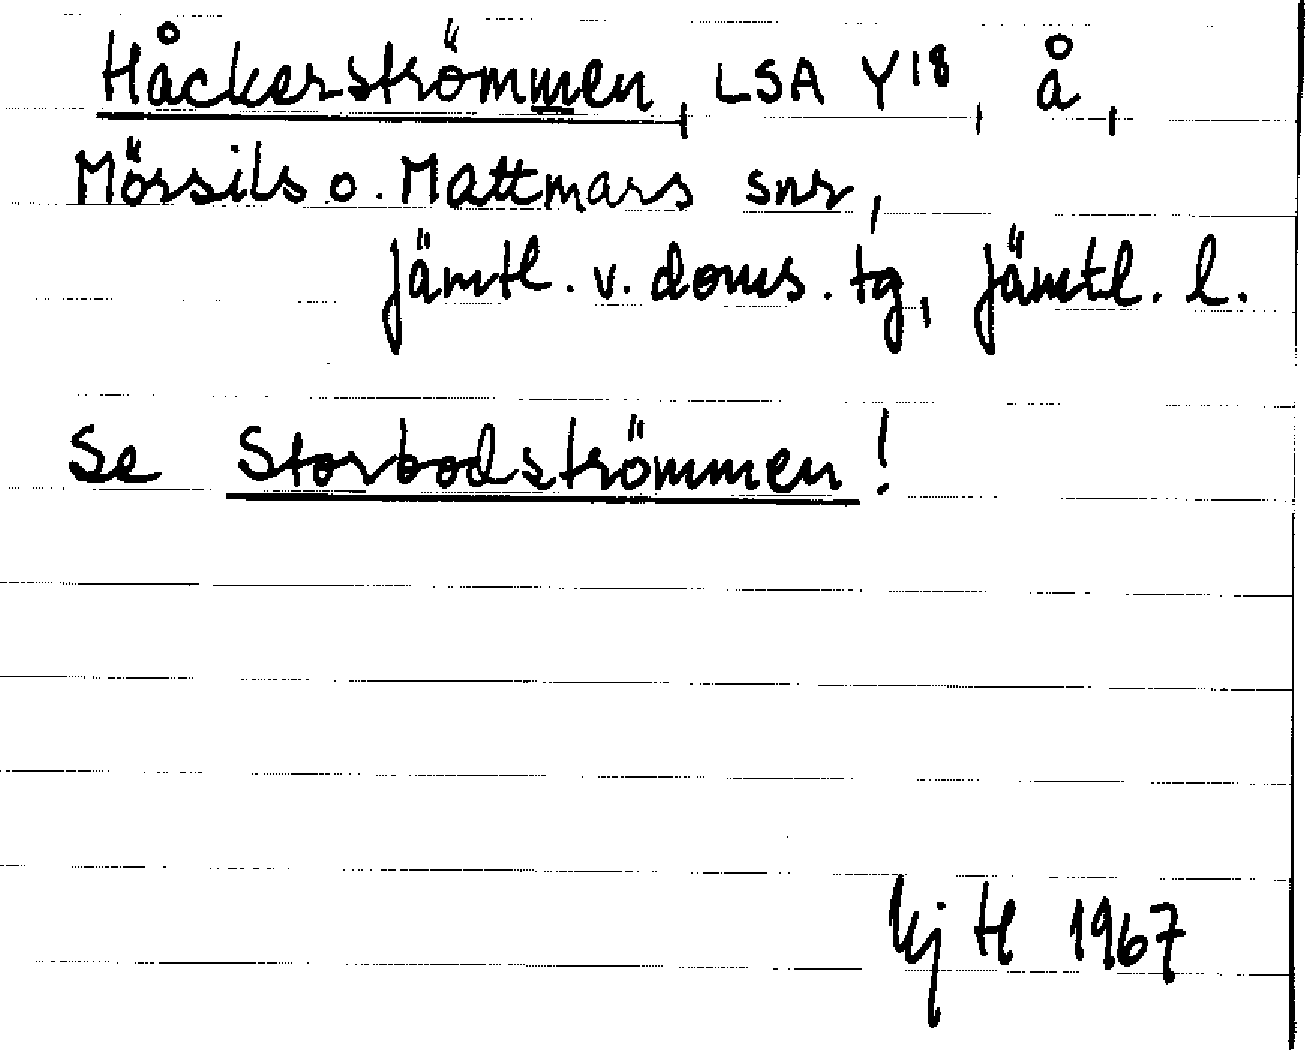 Håckerströmmen, LSA Y18, å,
Mörsils o. Mattmars snr,
Jämtl. v. doms. tg, Jämtl. l.
Se Storbodströmmen!
1967